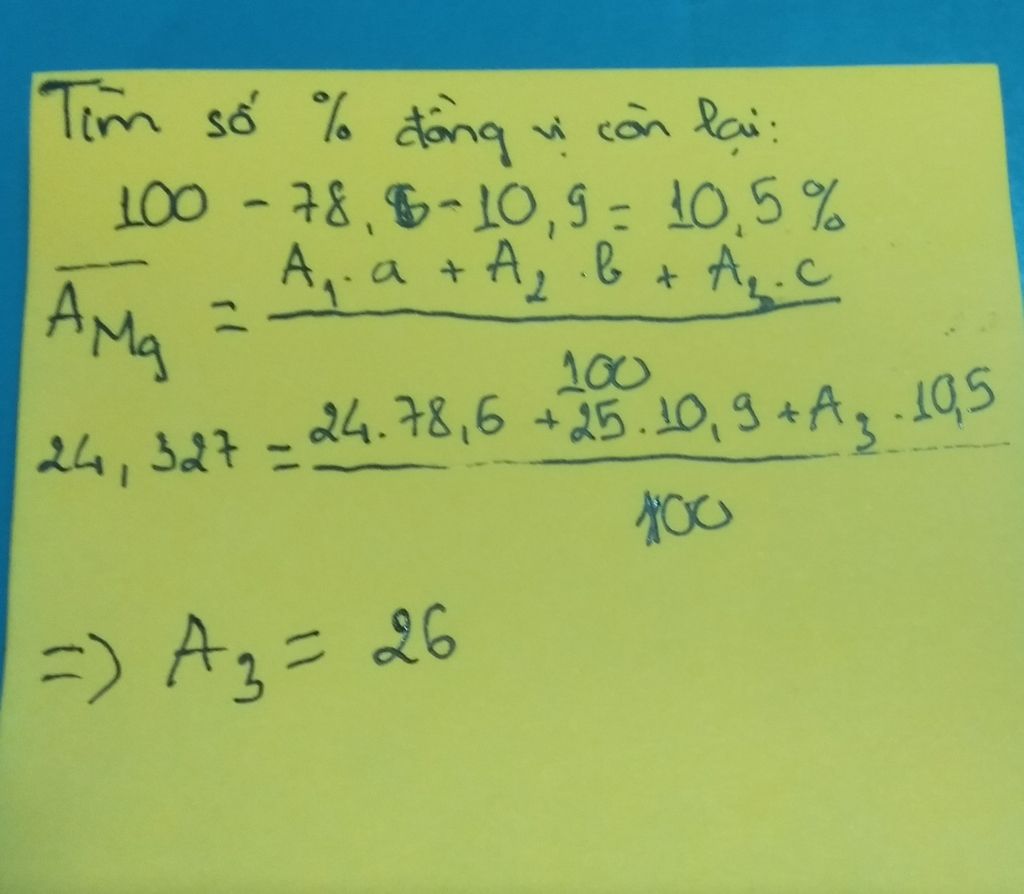 Tìm số % đồng vị còn lại:
100 - 78,6 - 10,9 = 10,5 %
A̅_Mg = (A₁.a + A₂.b + A₃.c) / 100
24,327 = (24.78,6 + 25.10,9 + A₃.10,5) / 100
=> A₃ = 26